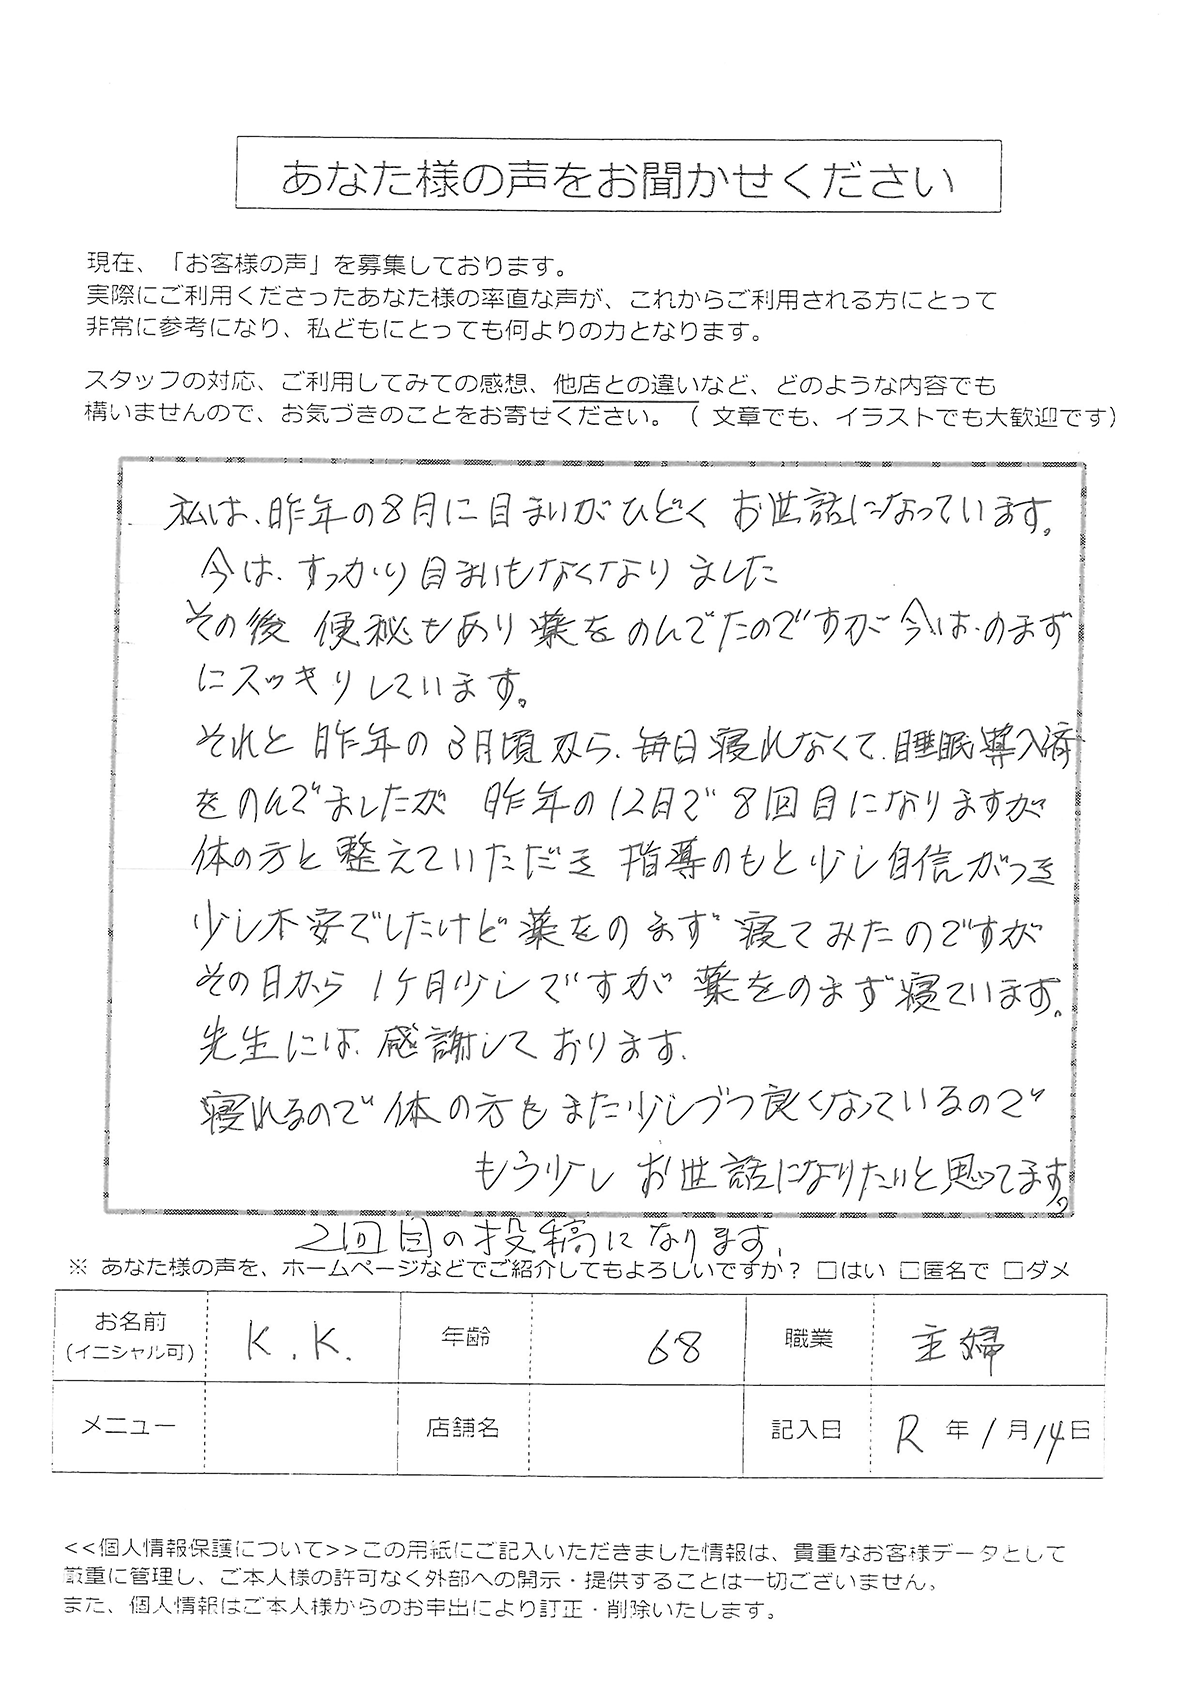 あなた様の声をお聞かせください
現在、「お客様の声」を募集しております。
実際にご利用くださったあなた様の率直な声が、これからご利用される方にとって
非常に参考になり、私どもにとっても何よりの力となります。
スタッフの対応、ご利用してみての感想、他店との違いなど、どのような内容でも
構いませんので、お気づきのことをお寄せください。（文章でも、イラストでも大歓迎です）
私は、昨年の8月に目まいがひどく お世話になっています。
今は、すっかり目まいもなくなりました
その後 便秘もあり薬をのんでたのですが 今は、のまず
にスッキりしています。
それと 昨年の3月頃から、毎日寝れなくて、睡眠導入済
をのんでましたが 昨年の12月で8回目になりますが
体の方と整えていただき 指導のもと少し自信がつき
少し不安でしたけど薬をのまず 寝てみたのですが
その日から 1ヶ月少しですが 薬をのまず寝ています。
先生には、感謝しております、
寝れるので体の方もまた少しづつ良くなっているので
もう少し お世話になりたいと思ってます。
2回目の投稿になります、
※ あなた様の声を、ホームページなどでご紹介してもよろしいですか？ □はい □匿名で □ダメ
お名前 (イニシャル可) K.K. 年齢 68 職業 主婦
メニュー 店舗名 記入日 R 年 1 月 14 日
<<個人情報保護について>>この用紙にご記入いただきました情報は、貴重なお客様データとして
厳重に管理し、ご本人様の許可なく外部への開示・提供することは一切ございません。
また、個人情報はご本人様からのお申出により訂正・削除いたします。